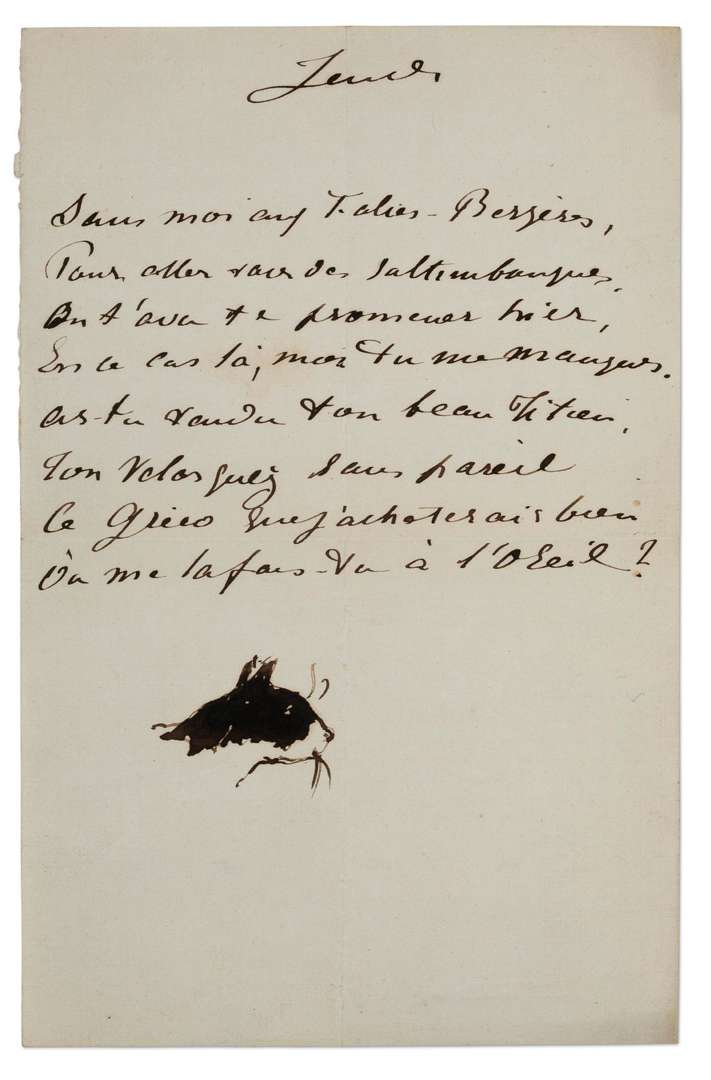 Jeudi
Sans moi aux Folies-Bergères,
Pour aller voir des saltimbanques,
On t'a vu te promener hier,
En ce cas là, moi tu me manques.
as-tu vendu ton beau Titien,
Ton Velasquez sans pareil
Le Gréco que j'achèterais bien
Où me la fais-tu à l'oseil ?